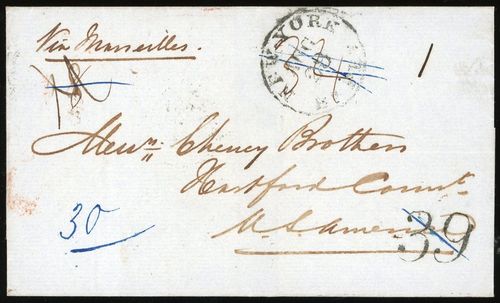 Via Marseilles.
NEW YORK
1
Messrs Cheney Brothers
Hartford Connt
30
U.S. Amer
39